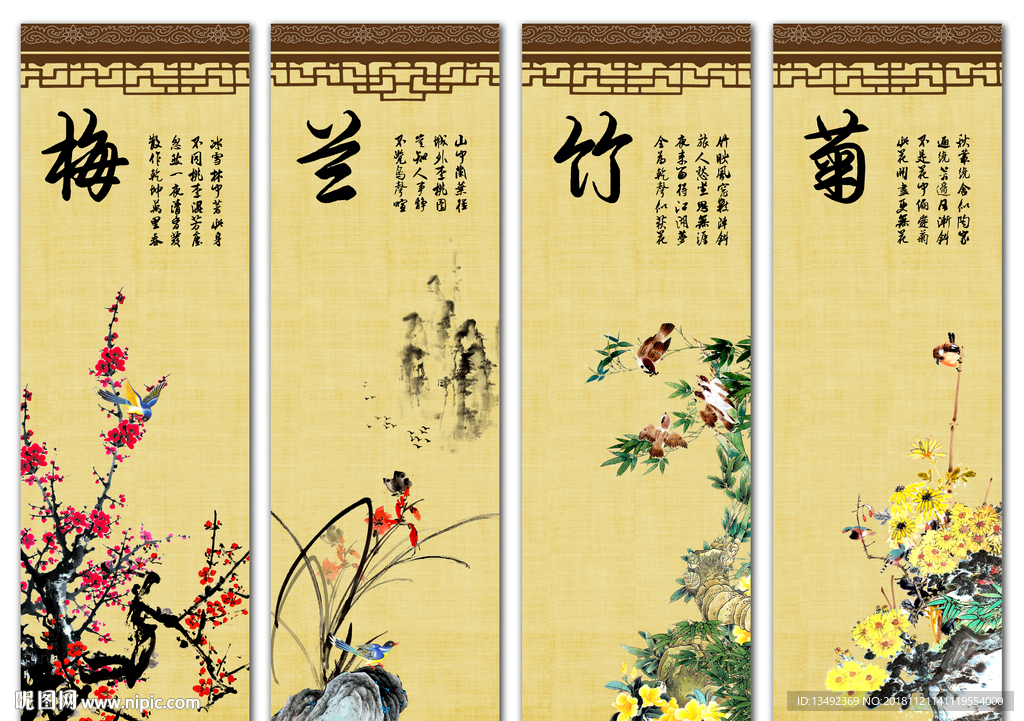 梅
冰雪林中著此身
不同桃李混芳尘
忽然一夜清香发
散作乾坤万里春
兰
山中兰叶径
城外李桃园
岂知人事静
不觉鸟声喧
竹
竹映风窗数阵斜
旅人愁坐思无涯
夜来留得江湖梦
全为乾声似荻花
菊
秋丛绕舍似陶家
遍绕篱边日渐斜
不是花中偏爱菊
此花开尽更无花
昵图网 www.nipic.com
ID:13492369 NO:20181121141119554000